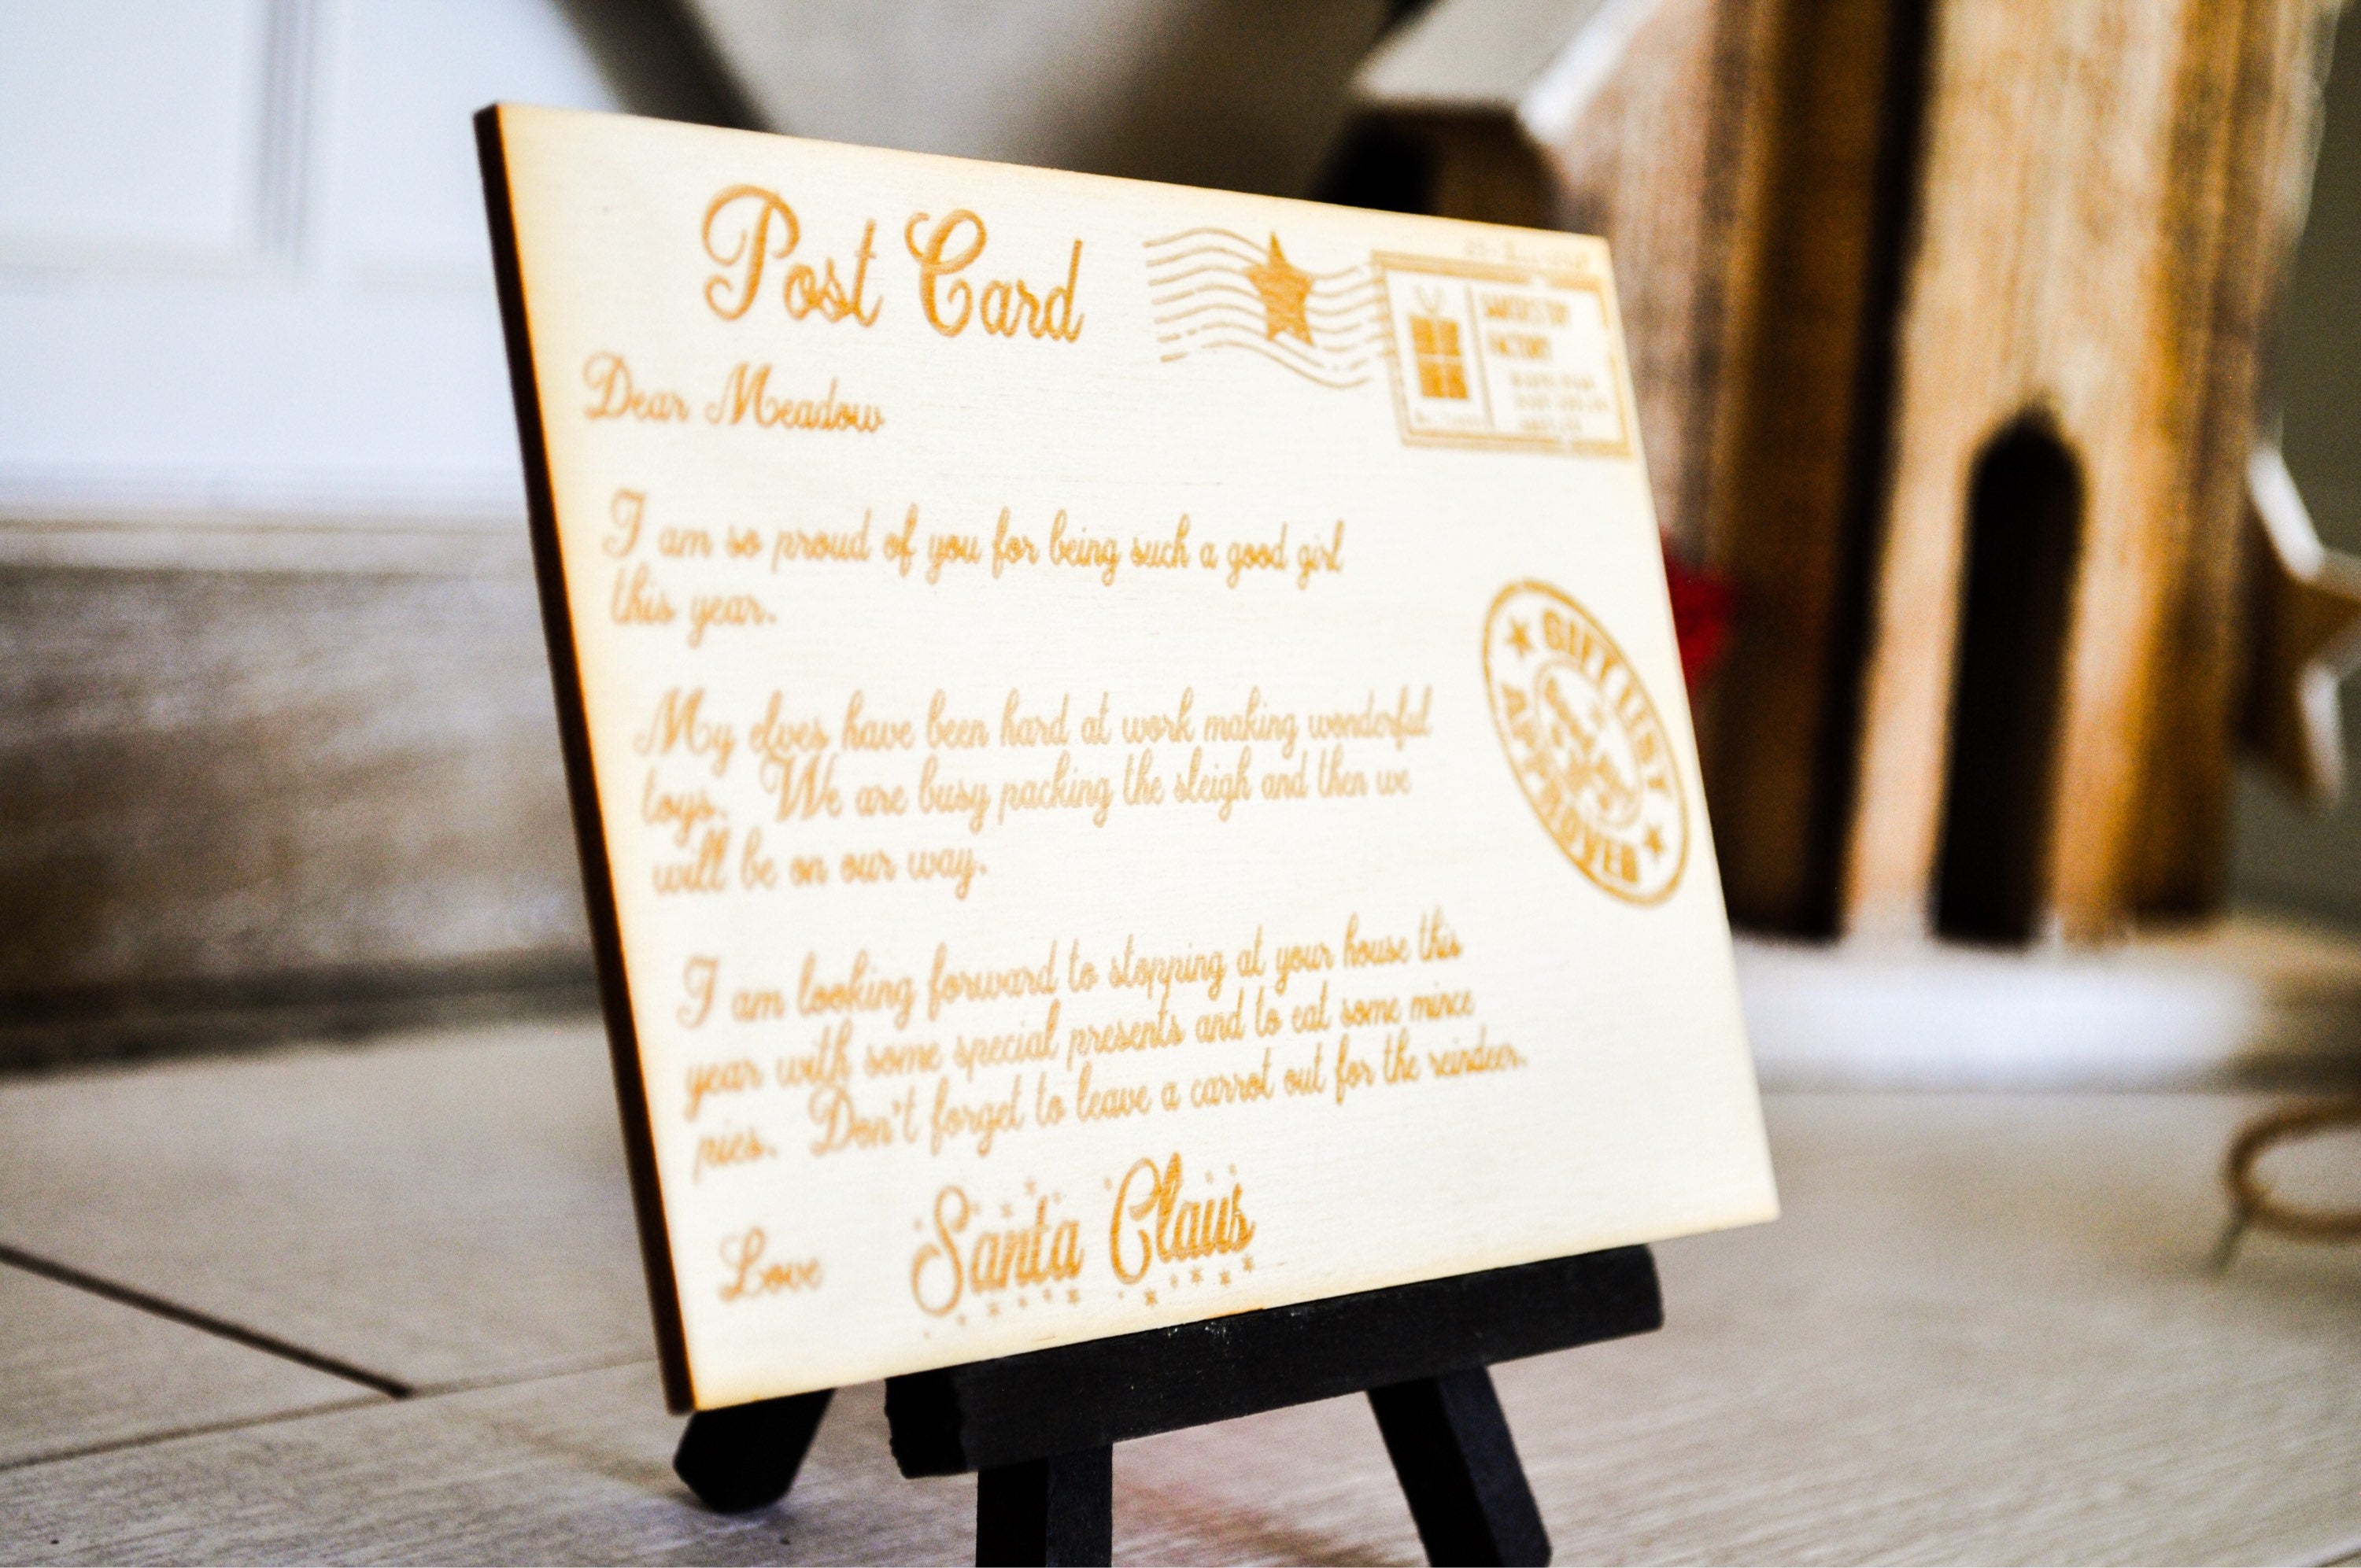 Post Card
SANTA'S TOY
FACTORY
Dear Meadow
I am so proud of you for being such a good girl
this year.
GIFT LIST
APPROVED
My elves have been hard at work making wonderful
toys.  We are busy packing the sleigh and then we
will be on our way.
I am looking forward to stopping at your house this
year with some special presents and to eat some mince
pies.  Don't forget to leave a carrot out for the reindeer.
Love Santa Claus